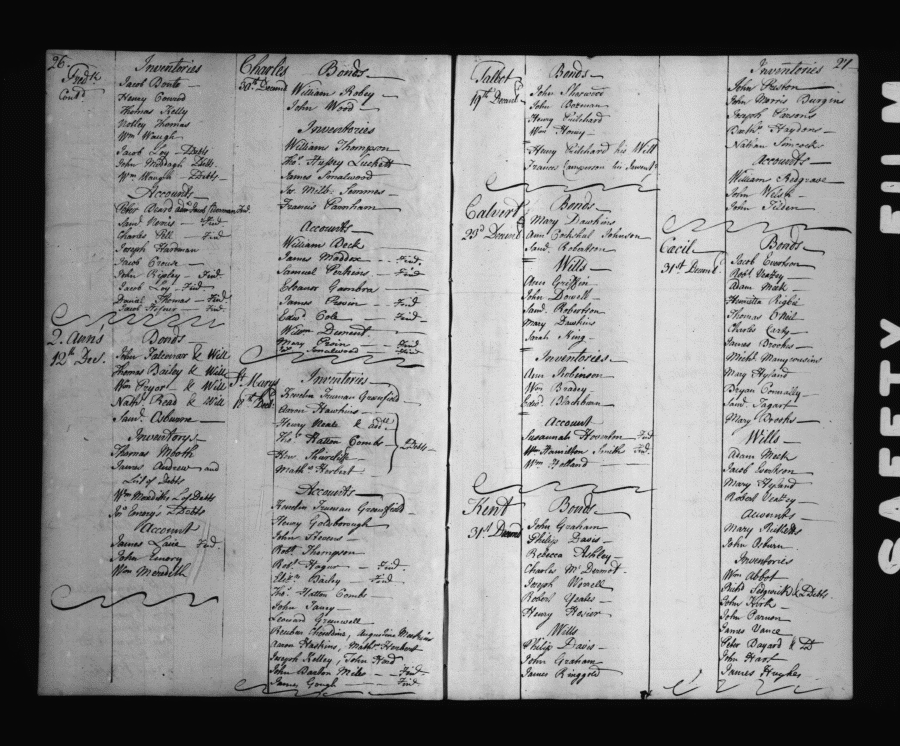 26.
Fredk
Contd
Inventories
Jacob Bonto
Henry Conrod
Thomas Kelly
Notley Thomas
Wm Waugh
Jacob Loy Debts
John Debts
Wm Waugh Debts
Accounts
Peter Fin.
Saml Norris Find
Charles Find
Joseph Hardman
Jacob Crouse
John Ripley Find
Jacob Loy Find
Danial Thomas Find
Jacob Find
2. Ann's
12th Dec.
Bonds
John & Will
Thomas Bailey & Will
Wm Pryor & Will
Nathl Read & Will
Saml Osburne
Inventorys
Thomas Mooth
James Andrew and
List of Debts
Wm Merediths L of Debts
Jno Emory's Debts
Account
James Lane Find
John Emory
Wm Meredith
Charles
30th Decemr
Bonds
William Robey
John Wood
Inventories
William Thompson
Thos Hussey Luckett
James Smalwood
Jos Milbn Semmes
Francis Parnham
Accounts
William Deck
James Maddox Find
Samuel Perkins Find
Eleanor Gambra
James Find
Edwd Cole Find
William Dement
Mary Find
Smalewood Find
St Marys
Inventories
Kenelm Truman Greenfield
Aaron Hawkins
Henry Neale & addl
Thos Hatton Combs
Debts
Mathw Herbert
Accounts
Kenelm Truman Greenfield
Henry Goldsborough
John Stevens
Robt Thompson
Robt Hagur Find
Elizh Bailey Find
Thos Hatton Combs
John Taney
Leonard Greenwell
Reuben Chiveldine, Augustine
Aaron Haskins, Mathw Herbert
Joseph Kelley, John Ford
John Barton Miles Find
James Gough Find
Talbot
19th Decemr
Bonds
John Sherwood
John Bozman
Henry Pritchard
Wm Honey
Henry Pritchard his Will
Francis his Invent
Calvert
23d Decemr
Bonds
Mary Dawkins
Ann Johnson
Saml Robertson
Wills
Ann Griffin
John Dowell
Saml Robertson
Mary Dawkins
Sarah King
Inventories
Ann Robinson
Wm Bradey
Edwd Blackburn
Account
Susannah Hounton Find
Wm Hamilton Smith Find
Wm Holland
Kent
31st Decemr
Bonds
John Graham
Philip Davis
Rebecca Ashley
Charles McDermot
Joseph Worrell
Robert Yeates
Henry Hosier
Wills
Philip Davis
John Graham
James Ringgold
27
Inventories
John Preston
John Morris Burgins
Joseph Parsons
Bathw Haydons
Nathan Simcock
Accounts
William Redgrave
John Welsh
John Tilden
Cacil
31st Decemr
Bonds
Jacob Everson
Robt Veazey
Adam Meek
Henrietta Rigbie
Thomas O'Neil
Charles Carty
James Brooks
Michl Manycousins
Mary Hyland
Bryan Connally
Saml Tagart
Mary Brooks
Wills
Adam Meek
Jacob Everson
Mary Hyland
Robert Veazey
Accounts
Mary Ricketts
John Osburn
Inventories
Wm Abbot
Richd Sedgwick & Debts
John Kirk
John Parson
James Vance
Peter Bayard &
John Hart
James Hughes
SAFETY FILM